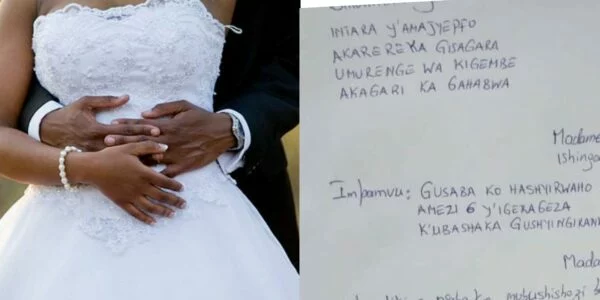 INTARA Y'AMAJYEPFO
AKARERE KA GISAGARA
UMURENGE WA KIGEMBE
AKAGARI KA GAHABWA
Madame
Ishinga
Impamvu: GUSABA KO HASHYIRWAHO
AMEZI 6 Y'IGERAGEZA
K'UBASHAKA GUSHYINGIRAN
Mada
mubushishozi